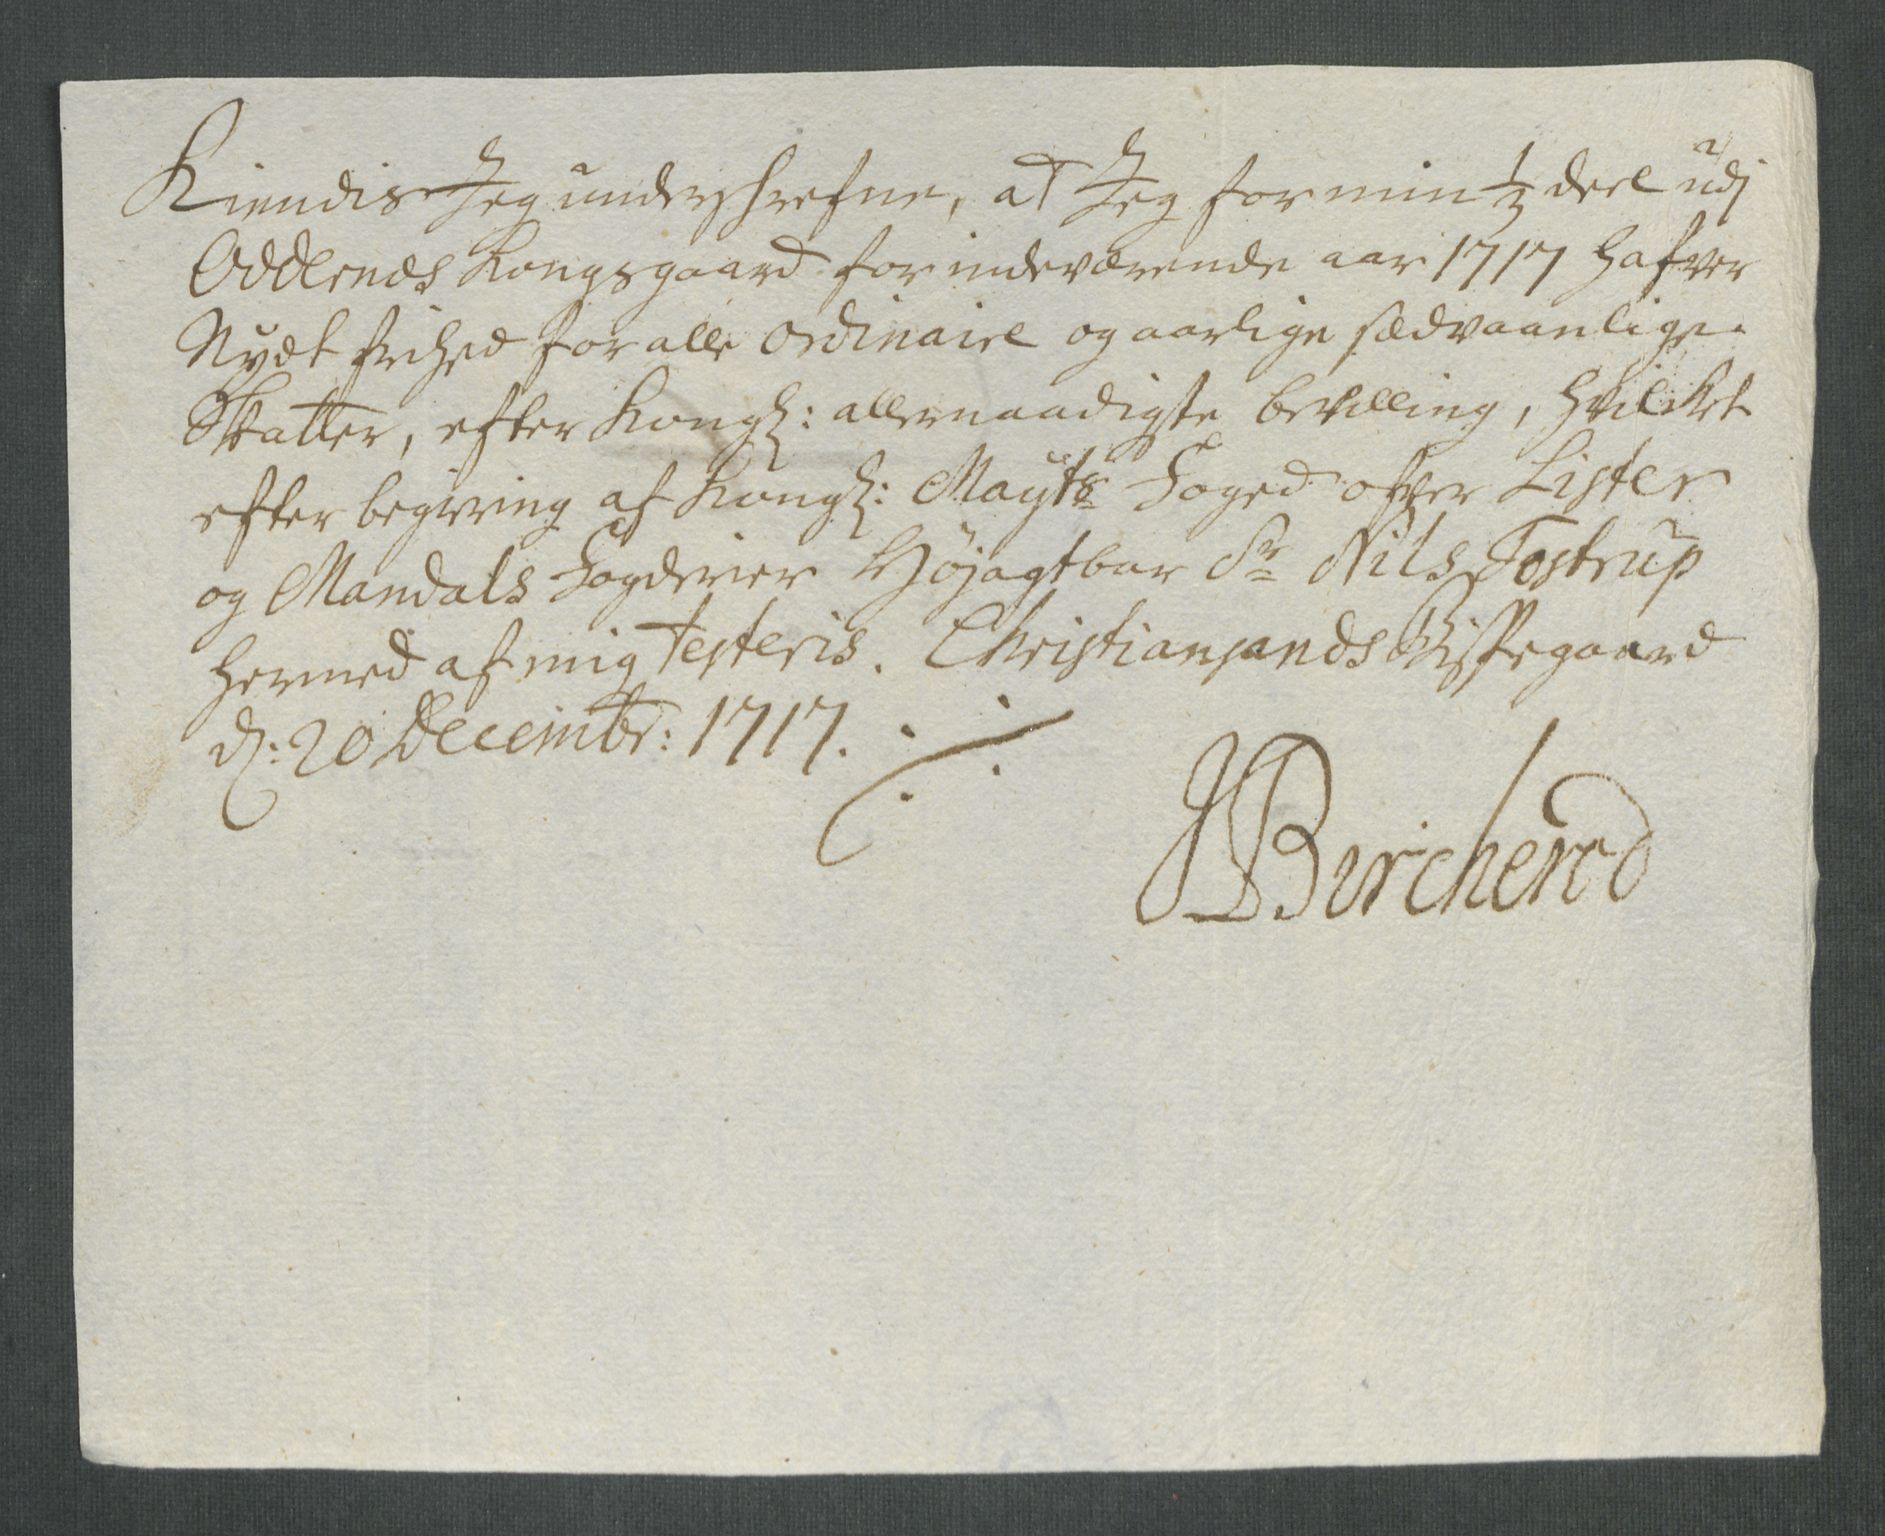 Kiendis Jeg underskrefne, at Jeg for min 1/3 deel udj
Oddernæs Kongsgaard for indeværende aar 1717 hafver
Nydt frihed for alle ordinaire og aarlige sædvaanlige
Skatter, efter Kongl: allernaadigste bevilling, hvilket
efter begiering af Kongl: Mayts Foged ofver Lister
og Mandals Fogderier Højagtbar Sr Nils Tostrup
hermed af mig testeris. Christiansands Bispegaard
d: 20 Decembr: 1717.
Bircherod